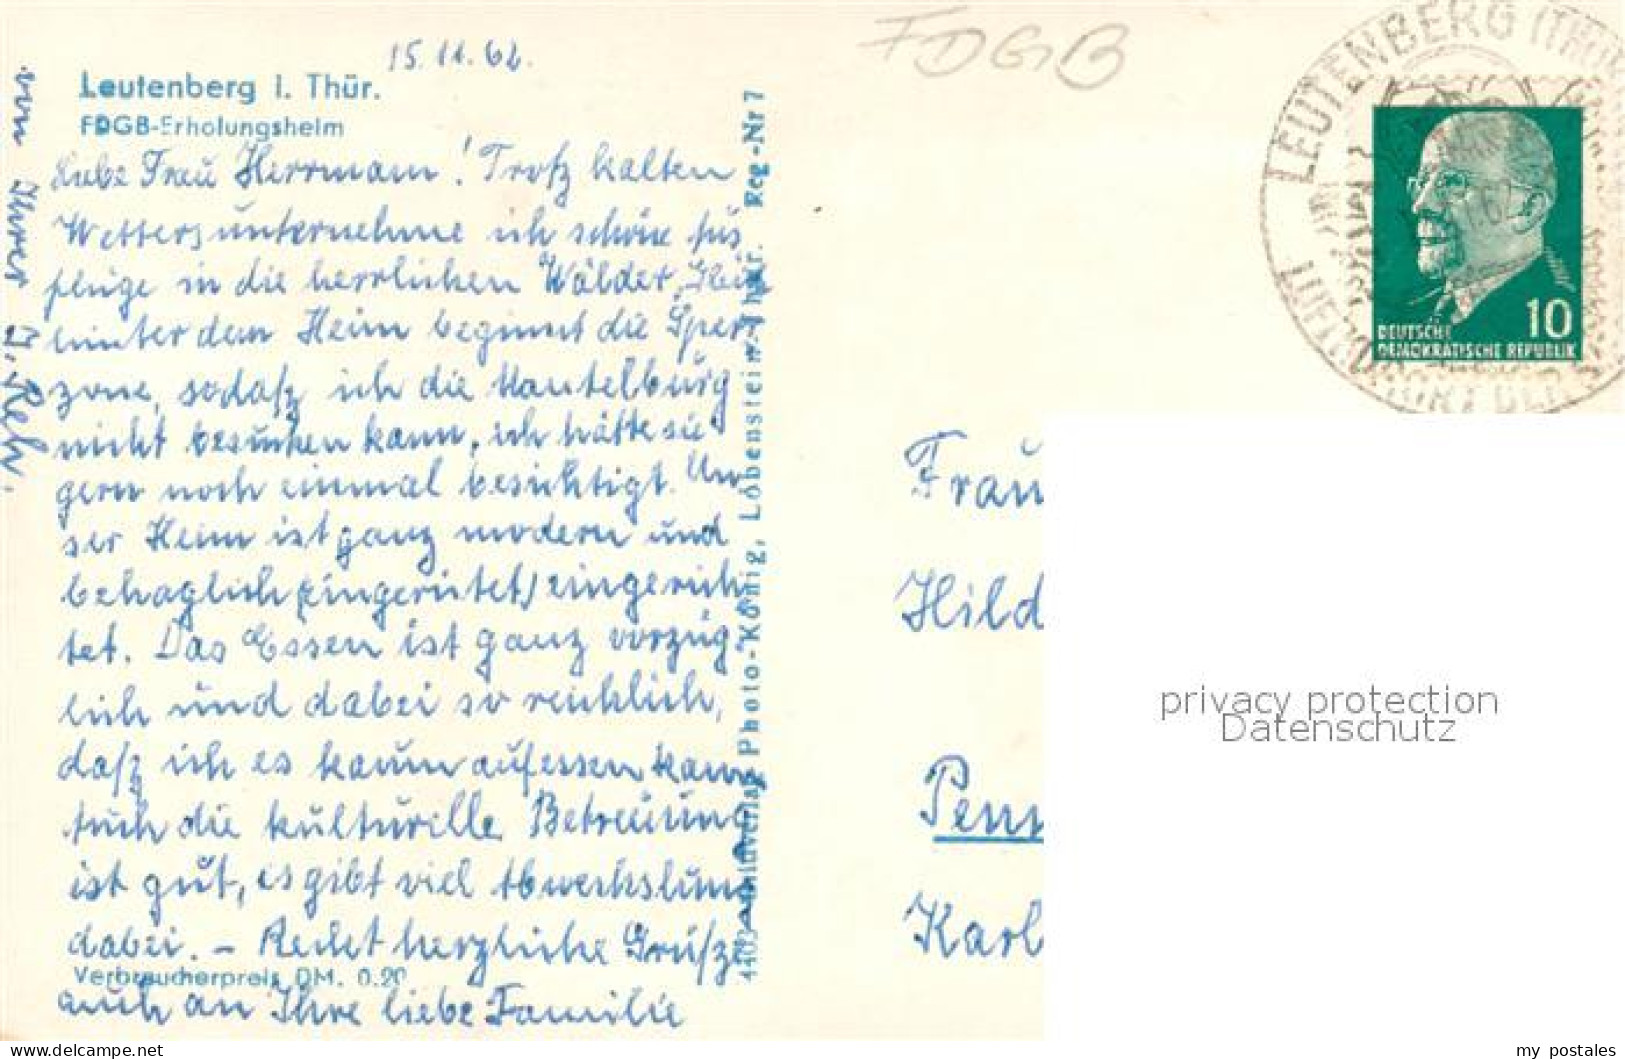 15.11.62.
Leutenberg i. Thür.
FDGB-Erholungsheim
Liebe Frau Herrmann! Trotz kalten
Wetters unternehme ich schöne Aus
flüge in die herrlichen Wälder. Gleich
hinter dem Heim beginnt die Sperr
zone, sodaß ich die Mantelburg
nicht besuchen kann, ich hätte sie
gern noch einmal besichtigt. Un
ser Heim ist ganz modern und
behaglich (eingeritet) eingerich
tet. Das Essen ist ganz vorzüg
lich und dabei so reichlich,
daß ich es kaum aufessen kann
Auch die kulturelle Betreuung
ist gut, es gibt viel Abwechslung
dabei. – Recht herzliche Grüße
Verbraucherpreis DM. 0.20
auch an Ihre liebe Familie
von Ihrer J. Reh.
Photo-König, Lobenstein/Thür. Reg-Nr 7
FDGB
LEUTENBERG (THÜR
LUFTKURORT DER
10
DEUTSCHE
DEMOKRATISCHE REPUBLIK
Frau
Hild
Penn
Karl
privacy protection
Datenschutz
www.delcampe.net
my_postales